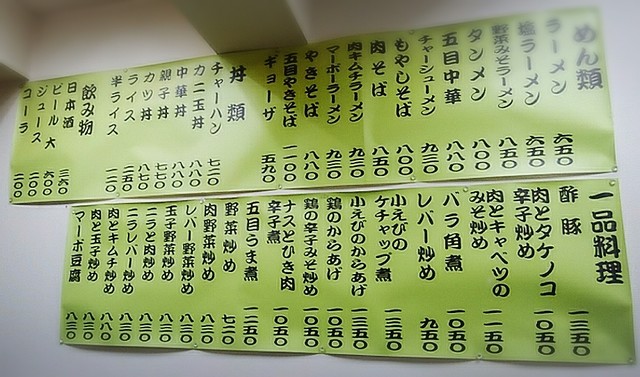 めん類
ラーメン 六五〇
塩ラーメン 六五〇
野菜みそラーメン 八五〇
タンメン 八〇〇
五目中華 八八〇
チャーシューメン 九三〇
もやしそば 八〇〇
肉そば 八五〇
肉キムチラーメン 九三〇
マーボーラーメン 九三〇
やきそば 八八〇
五目やきそば 一一〇〇
ギョーザ 五九〇
丼類
チャーハン 七二〇
カニ玉丼 八八〇
中華丼 八八〇
親子丼 七七〇
カツ丼 八七〇
ライス 二五〇
半ライス
飲み物
日本酒 三六〇
ビール 大 六〇〇
ジュース 二〇〇
コーラ 二〇〇
一品料理
酢豚 一三五〇
肉とタケノコ
辛子炒め 一〇五〇
肉とキャベツの
みそ炒め 一一五〇
バラ角煮 一〇五〇
レバー炒め 九五〇
小えびの
ケチャップ煮 一三五〇
小えびのからあげ 一三五〇
鶏のからあげ 一〇五〇
鶏の辛子みそ炒め 一〇五〇
ナスとひき肉
辛子煮 一〇五〇
五目うま煮 一二五〇
野菜炒め 七二〇
肉野菜炒め 八三〇
レバー野菜炒め 八三〇
玉子野菜炒め 八三〇
ニラと肉炒め 八三〇
ニラレバー炒め 八三〇
肉とキムチ炒め 八八〇
肉と玉子炒め 八三〇
マーボ豆腐 八三〇